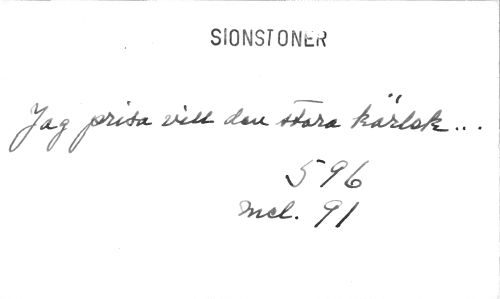 SIONSTONER
Jag prisa vill den stora kärlek...
596
mel. 91